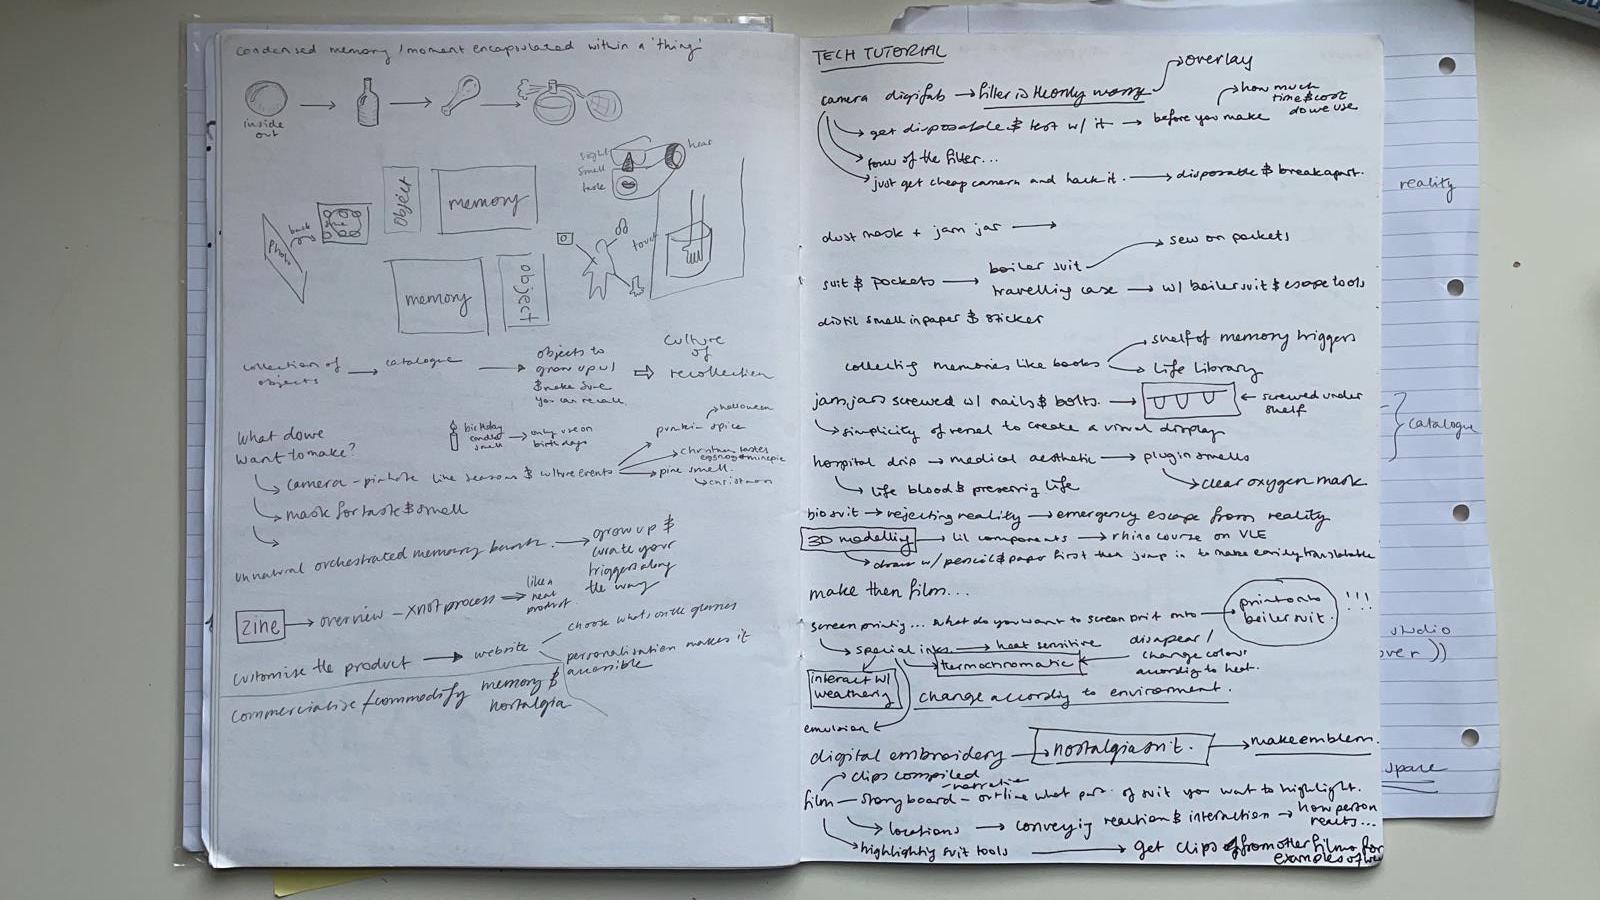 condensed memory / moment encapsulated within a 'thing'
inside out
sight
smell
taste
hear
touch
photo
back
object
memory
memory
object
collection of objects → catalogue → objects to grow up w/ & make sure you can recall ⇒ culture of recollection
What do we want to make?
birthday candle smell → only use on birthdays
camera - pinhole like seasons & culture events
pumpkin spice
halloween
christmas tastes eggnog & mincepie
pine smell.
christmas
mask for taste & smell
unnatural orchestrated memory bank. → grow up & curate your triggers along the way
zine → overview - X not process → like a real product.
customise the product → website
choose whats on the glasses
personalisation makes it accessible
commercialise / commodify memory & nostalgia
TECH TUTORIAL
camera digifab → filter is the only worry → overlay
get disposable & test w/ it → before you make → how much time & cost do we use
form of the filter...
just get cheap camera and hack it. → disposable & break apart.
dust mask + jam jar →
suit & pockets → boiler suit → sew on pockets
travelling case → w/ boiler suit & escape tools
distil smell in paper & sticker
collecting memories like books
shelf of memory triggers
life library
jam jars screwed w/ nails & bolts. → ← screwed under shelf
simplicity of vessel to create a visual display
hospital drip → medical aesthetic → plug in smells
life blood & preserving life
clear oxygen mask
bio suit → rejecting reality → emergency escape from reality
3D modelling → lil components → rhino course on VLE
draw w/ pencil & paper first then jump in to make easily translatable
make then film...
screen printing... what do you want to screen print onto → print onto boiler suit. !!!
special inks → heat sensitive
thermochromatic
disapear / change colour according to heat.
interact w/ weathering
change according to environment.
emulsion
digital embroidery → nostalgia suit. → make emblem.
clips compiled
- narrative
film — storyboard - outline what part of suit you want to highlight.
locations → conveying reaction & interaction → how person reacts...
highlighting suit tools → get clips of from other films for examples of
reality
catalogue
studio
over ))
space